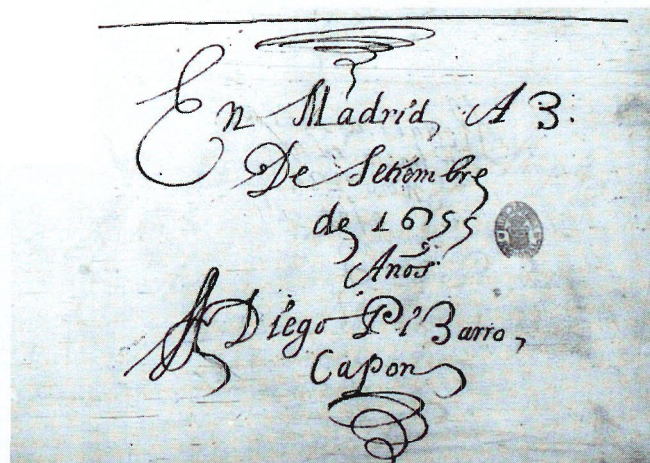 En Madrid, A 3.
De Setiembre
de 1655
Años
Diego Pi3arro,
Capon